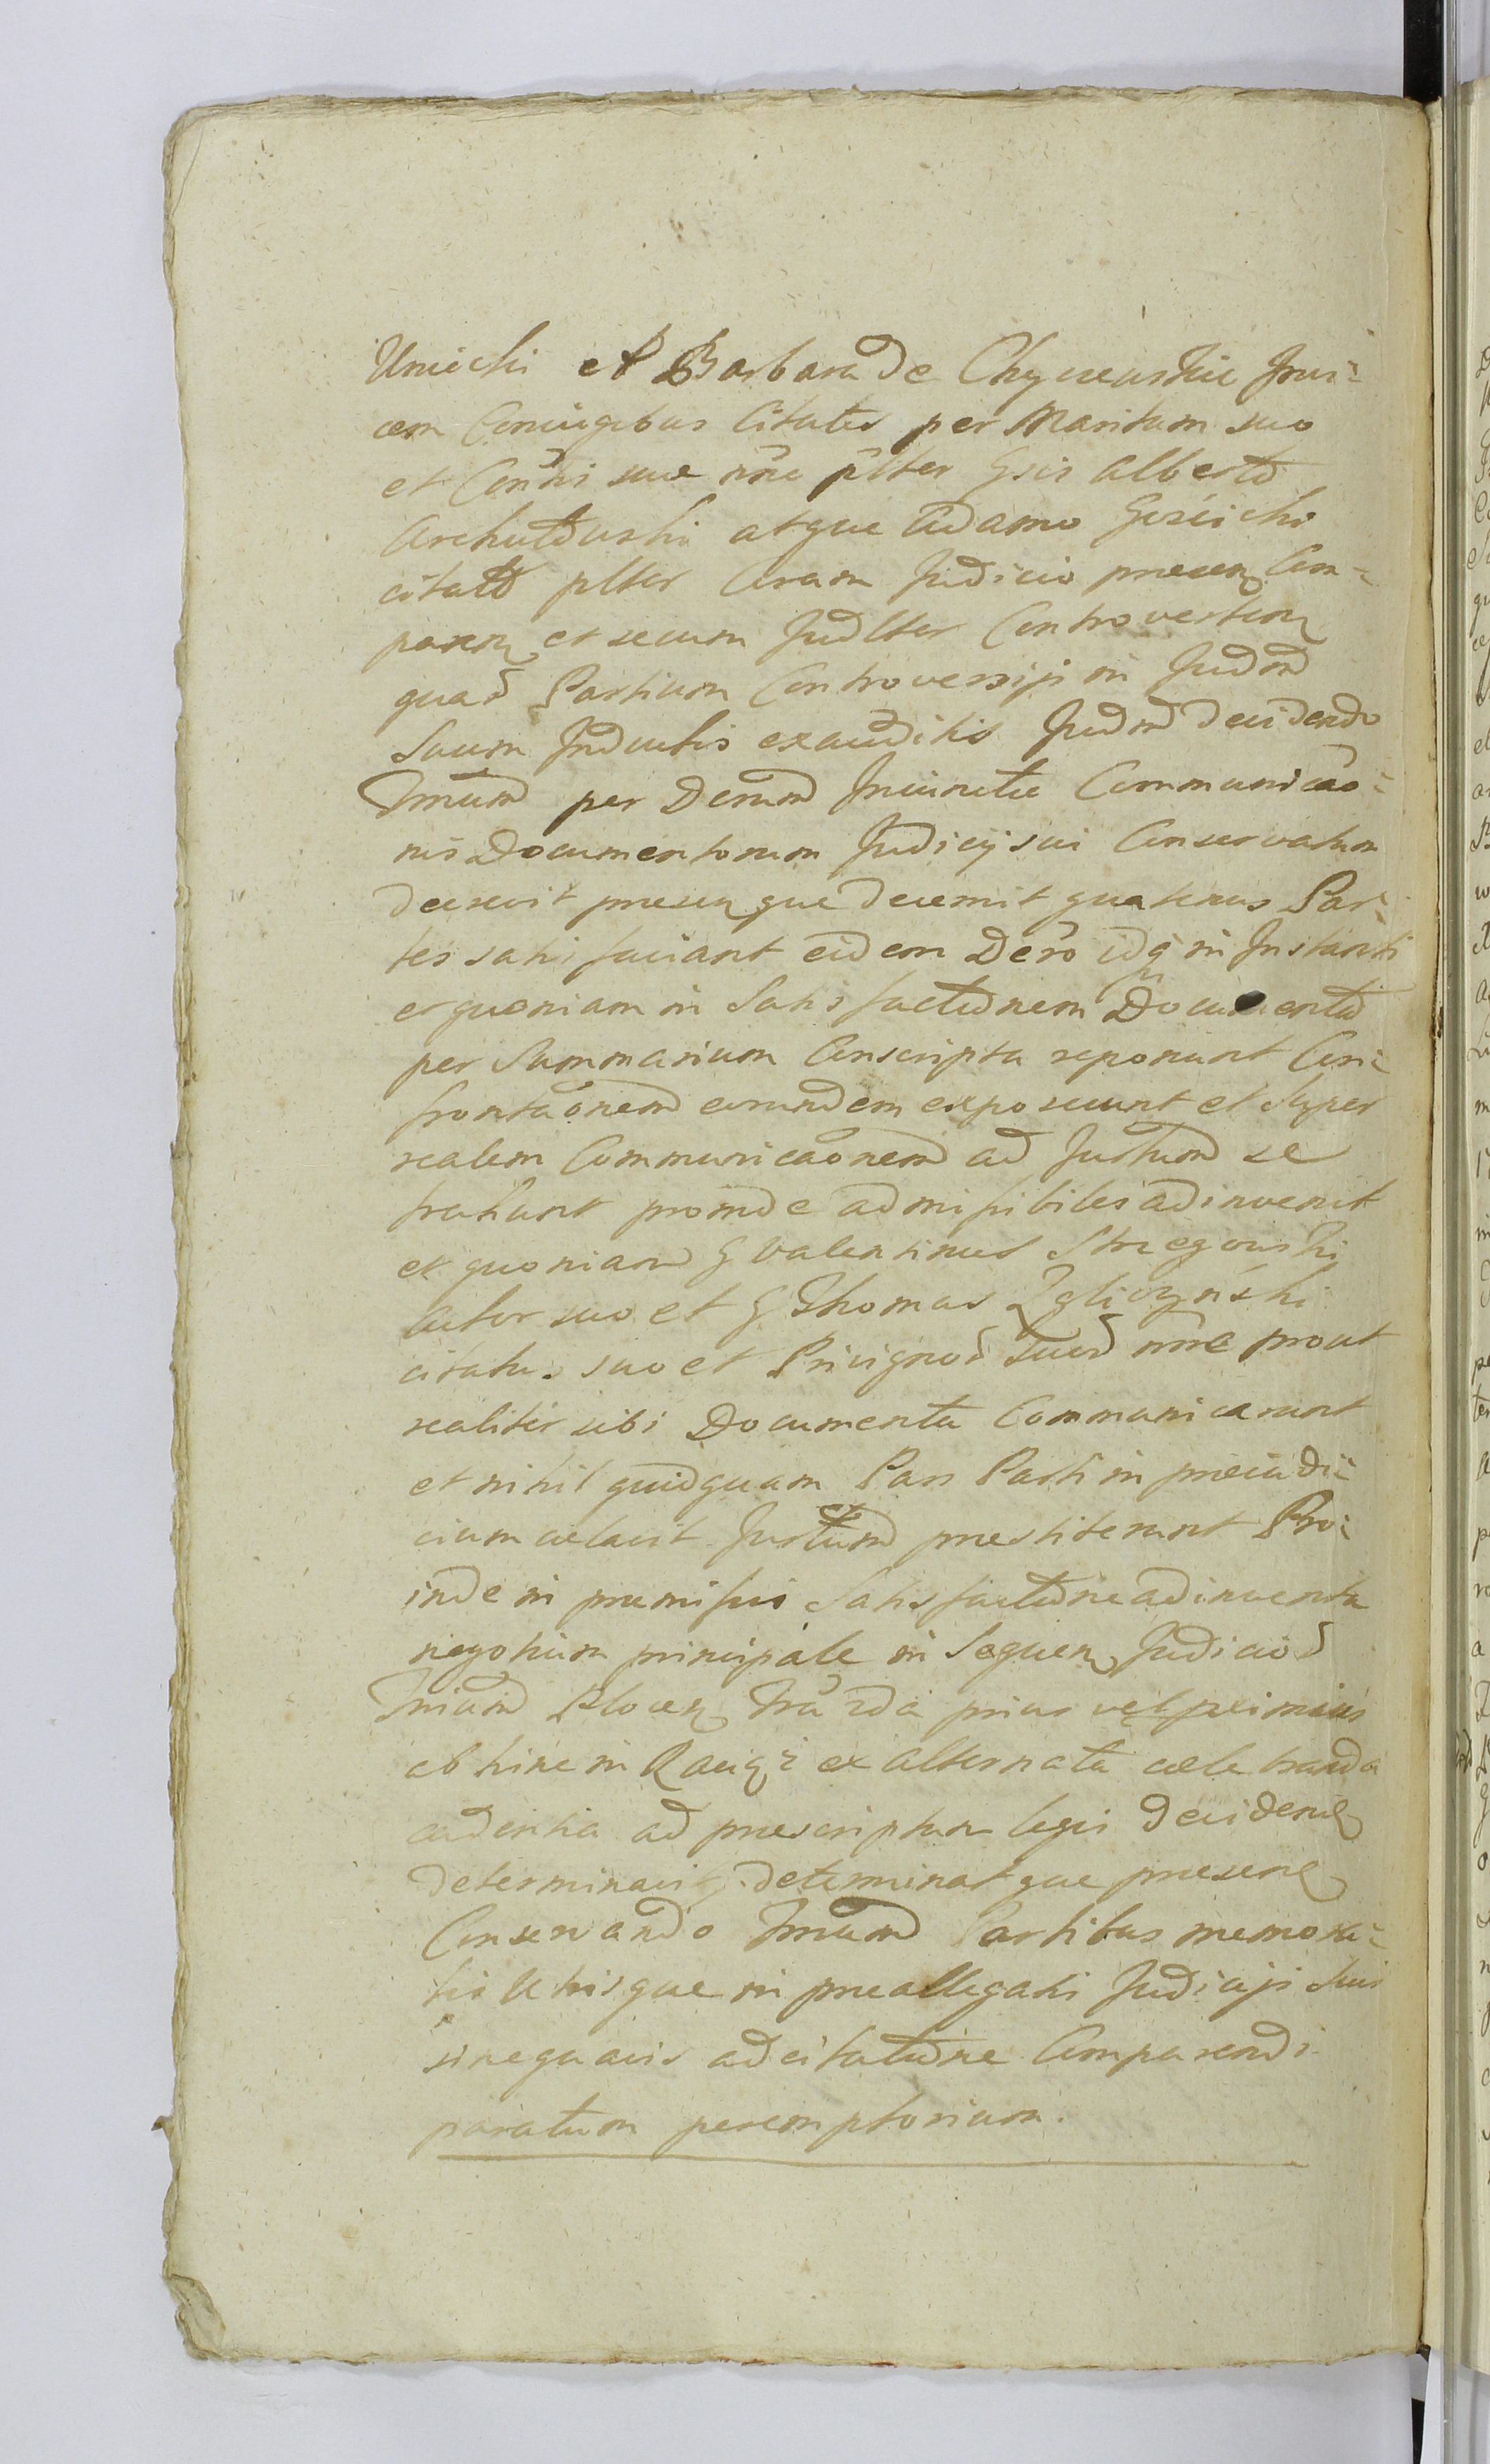 Uniecki et Barbara de Chycewskie Invi-
cem Coniugibus Citatis per Maritum suo
et Conthi suæ nõne pltter Gsis Alberto
Archutowski atque Adamo Gościcki
citatõ pltter Coram Judicio præsenʒ Com-
parenʒ et secum Judltter Controverteñʒ
quaȓ Partium Controversijs in Judm̃
Suum Inductis exauditis Judm̃ decidendo
Tmum̃ per Derum̃ Iniunctæ Communicão-
nis Documentorum Judicij sui Conservatum
decrevit præsenʒque decernit quatenus Par-
tes satisfaciant eidem Dero idq̃ in Instanti
et quoniam in Satisfactionem Documenta
per Summarium Conscripta reponunt Con-
frontaõnem eorundem exposcunt et Super
realem Communicaõnem ad Justum̃ se
trahunt proinde admissibiles adinvenit
et quoniam G Valentinus Strzegowski
Actor suo et G Thomas Zgliczyński
citatus suo et Privignoȓ suoȓ nõne prout
realiter sibi Documenta Communicarunt
et nihil quidquam Pars Parti in præiudi-
cium celavit Justum̃ præstiterunt Pro-
inde in præmissis Satisfactione adinventa
negotium principale in Sequenʒ Judicioȓ
Tmum̃ Plocenʒ prius vel proximius
abhinc in Raciąż ex alternata celebranda
cadentia ad præscriptum legis decidenḑ
determinavit, determinatque præsenʒ
Conservando Tmum̃ Partibus memora-
tis Utrisque in præallegatis Judicijs suis
sine quavis adcitatione Comparendi
paratum peremptorium.